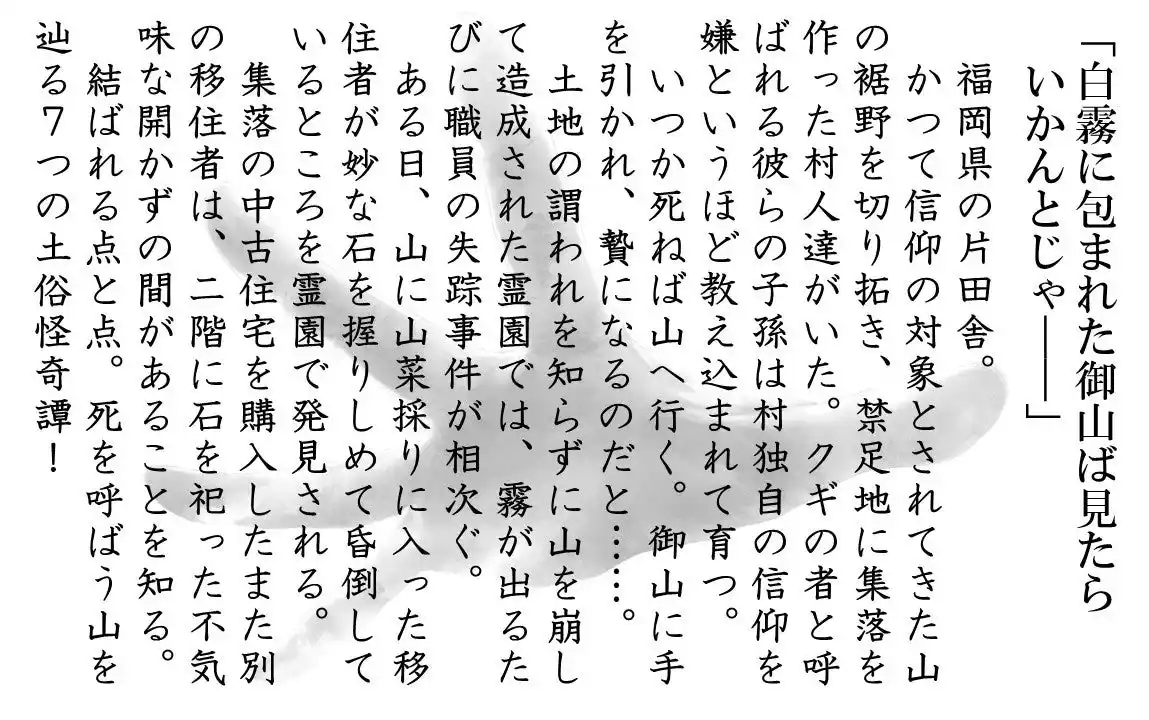 「白霧に包まれた御山ば見たら
いかんとじゃ――」
福岡県の片田舎。
かつて信仰の対象とされてきた山
の裾野を切り拓き、禁足地に集落を
作った村人達がいた。クギの者と呼
ばれる彼らの子孫は村独自の信仰を
嫌というほど教え込まれて育つ。
いつか死ねば山へ行く。御山に手
を引かれ、贄になるのだと……。
土地の謂われを知らずに山を崩し
て造成された霊園では、霧が出るた
びに職員の失踪事件が相次ぐ。
ある日、山に山菜採りに入った移
住者が妙な石を握りしめて昏倒して
いるところを霊園で発見される。
集落の中古住宅を購入したまた別
の移住者は、二階に石を祀った不気
味な開かずの間があることを知る。
結ばれる点と点。死を呼ばう山を
辿る7つの土俗怪奇譚！